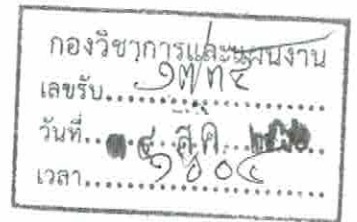 กองวิชาการและแผนงาน
เลขรับ ๑๗๓๔
วันที่ ๔ ส.ค.
เวลา ๑๐๐๔